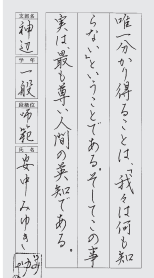 唯一分かり得ることは、「我々は何も知
らない」ということである。そしてこの事
実は最も尊い人間の英知である。
支部名
神辺
学年
一般
段級位
師範
氏名
安中みゆき